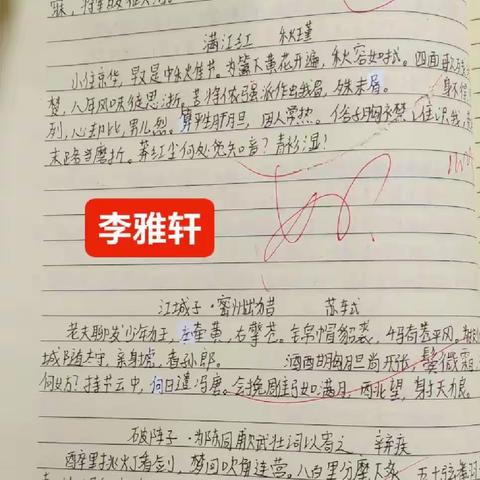 满江红 秋瑾
小住京华,早又是中秋佳节。为篱下黄花开遍,秋容如拭。四面歌残
楚,八年风味徒思浙。苦将侬强派作蛾眉,殊未屑。 身不得
列,心却比,男儿烈。算平生肝胆,因人常热。俗子胸襟谁识我,
末路当磨折。莽红尘何处觅知音?青衫湿!
李雅轩
江城子·密州出猎 苏轼
老夫聊发少年狂,左牵黄,右擎苍。锦帽貂裘,千骑卷平冈。
城随太守,亲射虎,看孙郎。 酒酣胸胆尚开张,鬓微霜,
何妨?持节云中,何日遣冯唐。会挽雕弓如满月,西北望,射天狼。
破阵子·为陈同甫赋壮词以寄之 辛弃疾
醉里挑灯看剑,梦回吹角连营。八百里分麾下炙,五十弦